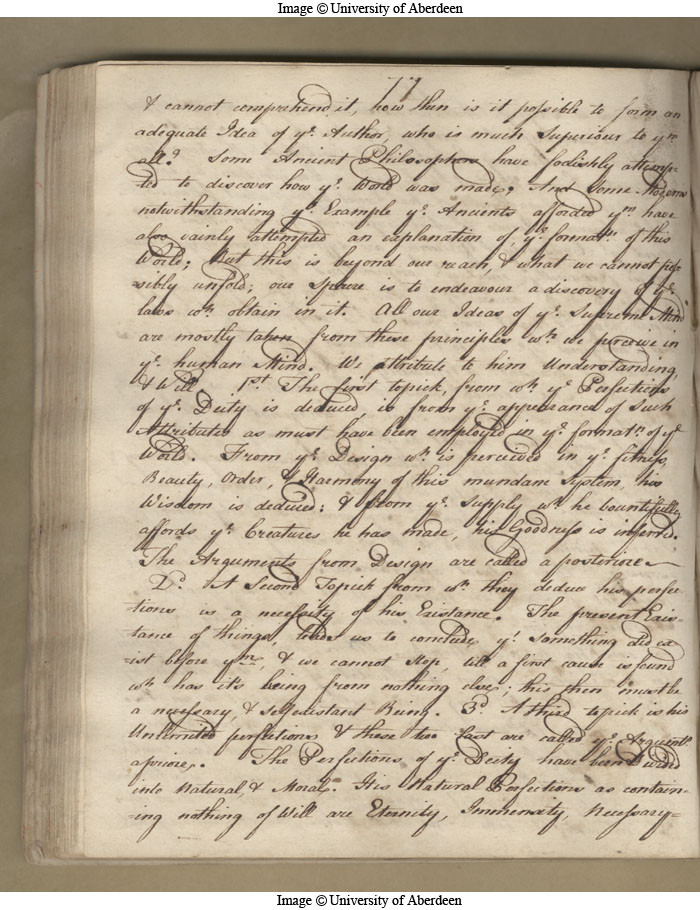 Image © University of Aberdeen
77
& cannot comprehend it, how then is it possible to form an
adequate Idea of ye. Author, who is much Superiour to ym
all? Some Ancient Philosophers have foolishly attemp=
ted to discover how ye. World was made. And some Moderns
notwithstanding ye. Example ye. Ancients afforded ym. have
also vainly attempted an explanation of ye. formatn. of this
World; But this is beyond our reach, & what we cannot pos
sibly unfold; our Sphere is to endeavour a discovery of ye.
laws wch. obtain in it. All our Ideas of ye. Supreme Mind
are mostly taken from these principles wch. we perceive in
ye. human Mind. We attribute to him Understanding,
& Will. 1st. The first topick, from wch. ye. Perfections
of ye. Deity is deduced, is from ye. appearance of Such
Attributes as must have been employed in ye. formatn. of ye
World. From ye. Design wch. is perceived in ye. fitness,
Beauty, Order, & Harmony of this mundane System, his
Wisdom is deduced: & from ye. Supply wch. he bountifully
affords ye. Creatures he has made, his Goodness is inferred.
The Arguments from Design are called a posteriore
2d. A Second Topick from wch. they deduce his perfec
tions is a necessity of his Existance. The present Exis=
tance of things, leads us to conclude yt. something did ex
=ist before ym., & we cannot stop, till a first cause is found
wch. has it's being from nothing else; this then must be
a necessary, & Selfexistant Being. 3d. A third topick is his
Unlimited perfections & these two last are called ye. Arguents
apriore. The Perfections of ye. Deity have been Divided
into Natural, & Moral. His Natural Perfections as contain=
=ing nothing of Will are Eternity, Immensity, Necessary=
Image © University of Aberdeen